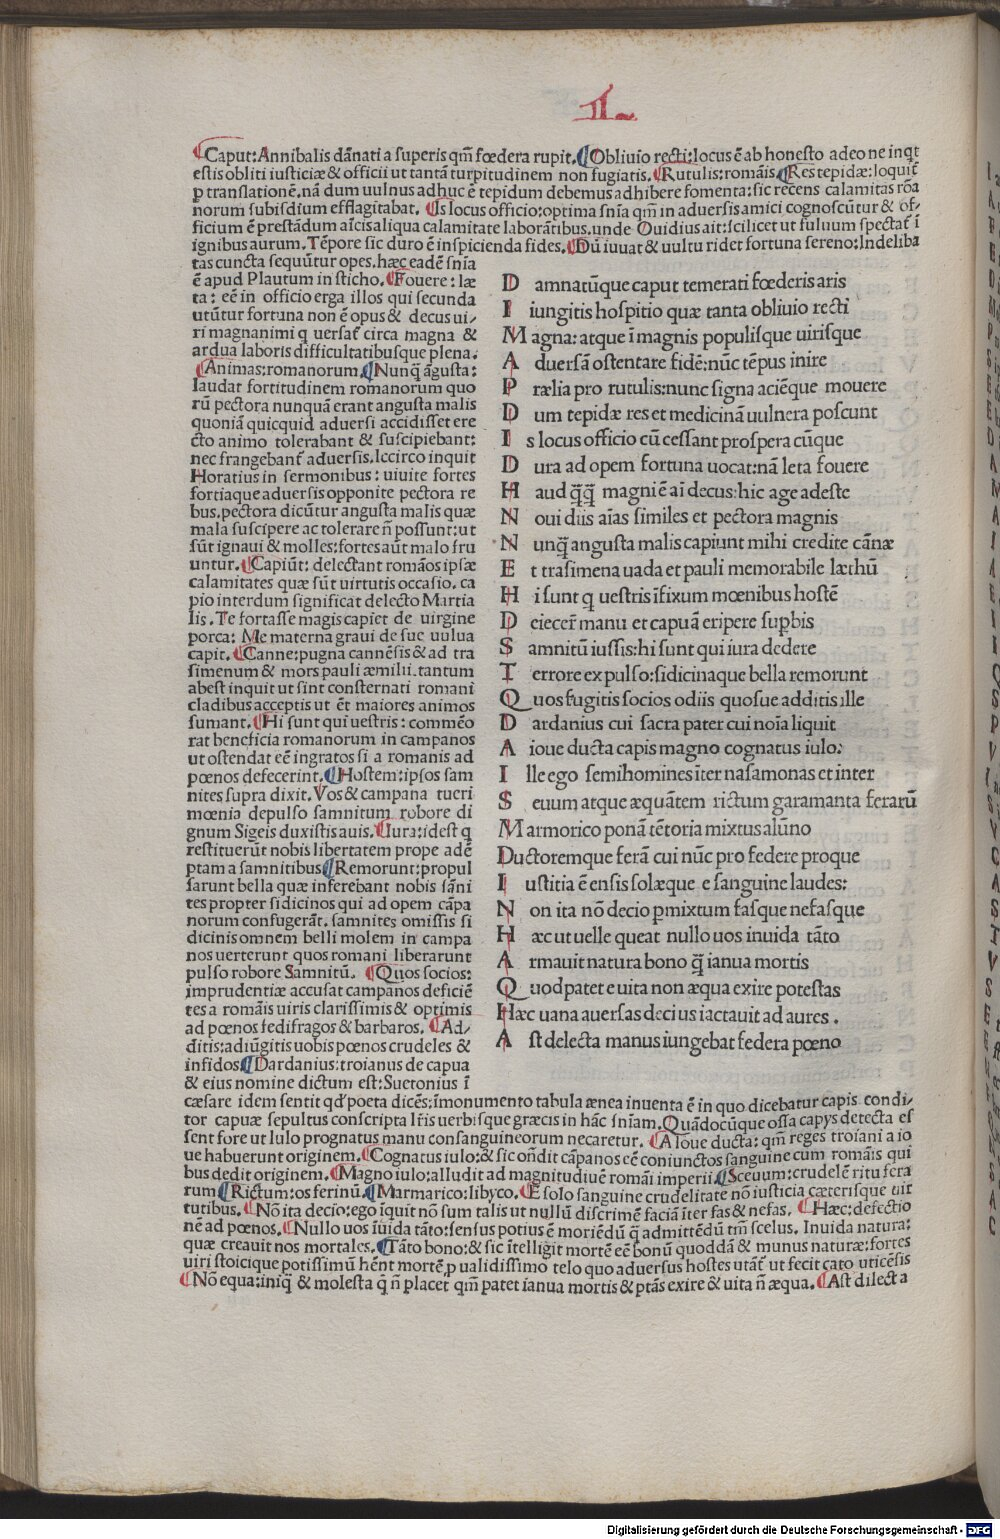 II
Caput:Annibalis dānati a superis qm̄ fœdera rupit.Obliuio recti:locus ē ab honesto adeo ne inqt
estis obliti iusticiæ & officii ut tantā turpitudinem non fugiatis.Rutulis:romāis.Res tepidæ:loquit̄
p translationē.nā dum uulnus adhuc ē tepidum debemus adhibere fomenta:sic recens calamitas rōa
norum subisdium efflagitabat. Is locus officio:optima snīa qm̄ in aduersis amici cognoscūtur & of-
ficium ē prestādum aīcis aliqua calamitate laborātibus.unde Ouidius ait:scilicet ut fuluum spectat̄ ī
ignibus aurum.Tēpore sic duro ē inspicienda fides.Dū iuuat & uultu ridet fortuna sereno:Indeliba
tas cuncta sequūtur opes.hæc eadē snīa
ē apud Plautum in sticho.Fouere: læ
ta: eē in officio erga illos qui secunda
utūtur fortuna non ē opus & decus ui-
ri magnanimi q uersat̄ circa magna &
ardua laboris difficultatibusque plena.
Animas:romanorum.Nunq̄ āgusta:
laudat fortitudinem romanorum quo
rū pectora nunquā erant angusta malis
quoniā quicquid aduersi accidisset ere
cto animo tolerabant & suscipiebant:
nec frangebant̄ aduersis.Iccirco inquit
Horatius in sermonibus: uiuite fortes
fortiaque aduersis opponite pectora re
bus.pectora dicūtur angusta malis quæ
mala suscipere ac tolerare n̄ possunt:ut
sūt ignaui & molles:fortes aūt malo fru
untur.Capiūt: delectant romāos ipsæ
calamitates quæ sūt uirtutis occasio. ca
pio interdum significat delecto Martia
lis. Te fortasse magis capiet de uirgine
porca: Me materna graui de sue uulua
capit.Canne:pugna cannēsis & ad tra
simenum & mors pauli æmilii.tantum
abest inquit ut sint consternati romani
cladibus acceptis ut ēt maiores animos
sumant.Hi sunt qui uestris: commēo
rat beneficia romanorum in campanos
ut ostendat eē ingratos si a romanis ad
pœnos defecerint.Hostem:ipsos sam
nites supra dixit.Vos & campana tueri
mœnia depulso samnitum robore di
gnum Sigeis duxistis auis.Iura:idest q
restituerūt nobis libertatem prope adē
ptam a samnitibus Remorunt:propul
sarunt bella quæ inferebant nobis sāni
tes propter sidicinos qui ad opem cāpa
norum confugerāt.samnites omissis si
dicinis omnem belli molem in campa
nos uerterunt quos romani liberarunt
pulso robore Samnitū. Quos socios:
imprudentiæ accusat campanos deficiē
tes a romāis uiris clarissimis & optimis
ad pœnos fedifragos & barbaros.Ad-
ditis:adiūgitis uobis pœnos crudeles &
infidos Dardanius:troianus de capua
& eius nomine dictum est:Suetonius ī
D amnatūque caput temerati fœderis aris
I iungitis hospitio quæ tanta obliuio recti
M agna:atque ī magnis populisque uirisque
A duersā ostentare fidē:nūc tēpus inire
P rælia pro rutulis:nunc signa aciēque mouere
D um tepidæ res et medicinā uulnera poscunt
I s locus officio cū cessant prospera cūque
D ura ad opem fortuna uocat:nā leta fouere
H aud q̄q̄ magni ē aī decus:hic age adeste
N oui diis aīas similes et pectora magnis
N unq̄ angusta malis capiunt mihi credite cānæ
E t trasimena uada et pauli memorabile læthū
H i sunt q uestris īfixum mœnibus hostē
D eiecer̄ manu et capuā eripere supbis
S amnitū iussis:hi sunt qui iura dedere
T errore expulso:sidicinaque bella remorunt
Q uos fugitis socios odiis quosue additis ille
D ardanius cui sacra pater cui noīa liquit
A ioue ducta capis magno cognatus iulo:
I lle ego semihomines īter nasamonas et inter
S euum atque æquātem rictum garamanta ferarū
M armorico ponā tētoria mixtus alūno
Ductoremque ferā cui nūc pro federe proque
I ustitia ē ensis solæque e sanguine laudes:
N on ita nō decio pmixtum fasque nefasque
H æc ut uelle queat nullo uos inuida tāto
A rmauit natura bono q̄ ianua mortis
Q uod patet e uita non æqua exire potestas
Hæc uana auersas decius iactauit ad aures.
A st delecta manus iungebat federa pœno
cæsare idem sentit qd̄ poeta dicēs:ī monumento tabula ænea inuenta ē in quo dicebatur capis condi-
tor capuæ sepultus conscripta lr̄is uerbisque græcis in hāc snīam.Quādocūque ossa capys detecta es
sent fore ut Iulo prognatus manu consanguineorum necaretur. A Ioue ducta: qm̄ reges troiani a io
ue habuerunt originem.Cognatus iulo:& sic oñdit cāpanos eē coniunctos sanguine cum romāis qui
bus dedit originem.Magno iulo:alludit ad magnitudiuē romāi imperii.Sceuum:crudelē ritu fera
rum Rictum:os ferinū.Marmarico:libyco.E solo sanguine crudelitate nō iusticia cæterisque uir
tutibus.Nō ita decio:ego īquit nō sum talis ut nullū discrimē faciā īter fas & nefas. Hæc:defectio
nē ad pœnos.Nullo uos īuida tāto:sensus potius ē moriēdū q̄ admittēdū tm̄ scelus. Inuida natura:
quæ creauit nos mortales.Tāto bono:& sic ītelligit mortē eē bonū quoddā & munus naturæ:fortes
uiri stoicique potissimū hēnt mortē p ualidissimo telo quo aduersus hostes utāt̄ ut fecit cato uticēsis
Nō equa:iniq̄ & molesta q n̄ placet qm̄ patet ianua mortis & ptās exire & uita n̄ æqua.Ast dilecta
Digitalisierung gefördert durch die Deutsche Forschungsgemeinschaft - DFG